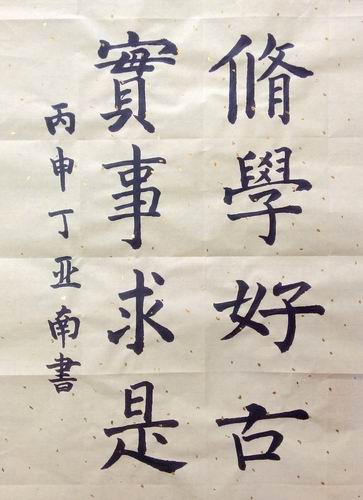 脩學好古
實事求是
丙申丁亚南書